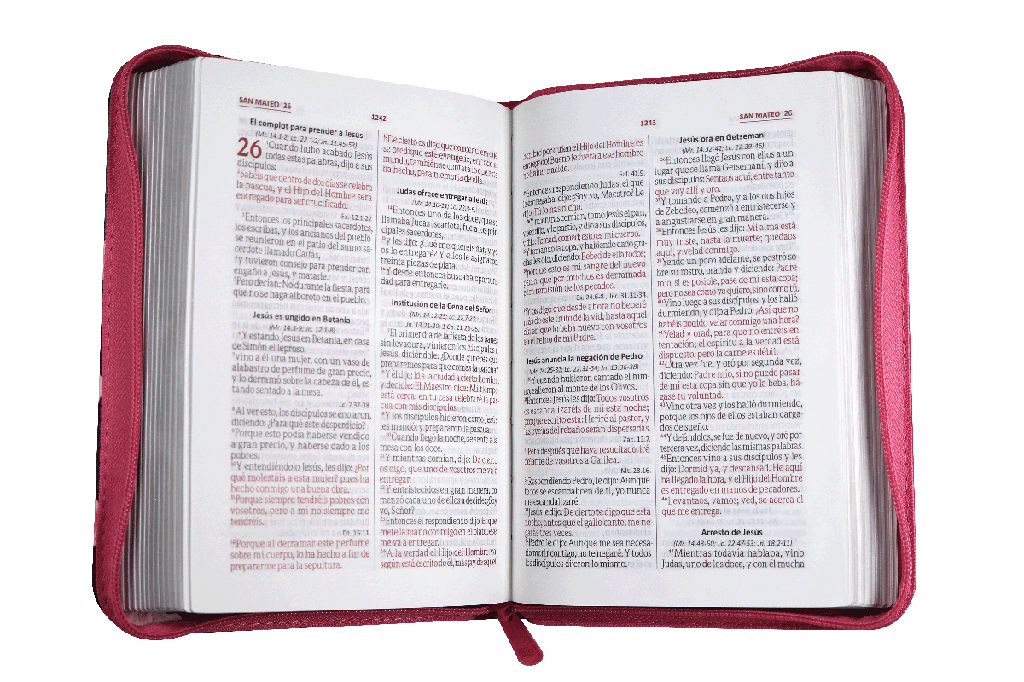 SAN MATEO 26
1242
El complot para prender a Jesús
(Mr. 14.1-2; Lc. 22.1-2; Jn. 11.45-53)
26 Cuando hubo acabado Jesús
todas estas palabras, dijo a sus
discípulos:
Sabéis que dentro de dos días se celebra
la pascua, y el Hijo del Hombre será
entregado para ser crucificado.
Entonces los principales sacerdotes,
los escribas, y los ancianos del pueblo
se reunieron en el patio del sumo sa-
cerdote llamado Caifás,
y tuvieron consejo para prender con
engaño a Jesús, y matarle.
Pero decían: No durante la fiesta, para
que no se haga alboroto en el pueblo.
Jesús es ungido en Betania
(Mr. 14.3-9; Jn. 12.1-8)
Y estando Jesús en Betania, en casa
de Simón el leproso,
vino a él una mujer, con un vaso de
alabastro de perfume de gran precio,
y lo derramó sobre la cabeza de él, es-
tando sentado a la mesa.
Lc. 7.37-38
Al ver esto, los discípulos se enojaron,
diciendo: ¿Para qué este desperdicio?
Porque esto podía haberse vendido
a gran precio, y haberse dado a los
pobres.
Y entendiéndolo Jesús, les dijo: ¿Por
qué molestáis a esta mujer? pues ha
hecho conmigo una buena obra.
Porque siempre tendréis pobres con
vosotros, pero a mí no siempre me
tendréis.
Porque al derramar este perfume
sobre mi cuerpo, lo ha hecho a fin de
prepararme para la sepultura.
De cierto os digo que
se predique este evangelio, en todo el
mundo, también se contará lo que ésta
ha hecho, para memoria de ella.
Judas ofrece entregar a Jesús
Entonces uno de los doce, que se
llamaba Judas Iscariote, fue a los prin-
cipales sacerdotes,
y les dijo: ¿Qué me queréis dar, y yo
os lo entregaré? Y ellos le asignaron
treinta piezas de plata.
Y desde entonces buscaba oportuni-
dad para entregarle.
Institución de la Cena del Señor
El primer día de la fiesta de los panes
sin levadura, vinieron los discípulos a
Jesús, diciéndole: ¿Dónde quieres que
preparemos para que comas la pascua?
Y él dijo: Id a la ciudad a cierto hombre,
y decidle: El Maestro dice: Mi tiempo
está cerca; en tu casa celebraré la pas-
cua con mis discípulos.
Y los discípulos hicieron como Jesús
les mandó, y prepararon la pascua.
Cuando llegó la noche, se sentó a la
mesa con los doce.
Y mientras comían, dijo: De cierto
os digo, que uno de vosotros me va a
entregar.
Y entristecidos en gran manera, co-
menzó cada uno de ellos a decirle: ¿Soy
yo, Señor?
Entonces él respondiendo dijo: El que
mete la mano conmigo en el plato, ese
me va a entregar.
A la verdad el Hijo del Hombre va,
según está escrito de él, mas ¡ay de aquel
1213
SAN MATEO 26
hombre por quien el Hijo del Hombre es
entregado! Bueno le fuera a ese hombre
no haber nacido.
Sal. 41.9
Entonces respondiendo Judas, el que
le entregaba, dijo: ¿Soy yo, Maestro? Le
dijo: Tú lo has dicho.
Y mientras comían, tomó Jesús el pan,
y bendijo, y lo partió, y dio a sus discípulos,
y dijo: Tomad, comed; esto es mi cuerpo.
Y tomando la copa, y habiendo dado gra-
cias, les dio, diciendo: Bebed de ella todos;
porque esto es mi sangre del nuevo
pacto, que por muchos es derramada
para remisión de los pecados.
Y os digo que desde ahora no beberé
más de este fruto de la vid, hasta aquel
día en que lo beba nuevo con vosotros
en el reino de mi Padre.
Jesús anuncia la negación de Pedro
Y cuando hubieron cantado el him-
no, salieron al monte de los Olivos.
Entonces Jesús les dijo: Todos vosotros
os escandalizaréis de mí esta noche;
porque escrito está: Heriré al pastor, y
las ovejas del rebaño serán dispersadas.
Zac. 13.7
Pero después que haya resucitado, iré
delante de vosotros a Galilea.
Mt. 28.16
Respondiendo Pedro, le dijo: Aunque
todos se escandalicen de ti, yo nunca
me escandalizaré.
Jesús le dijo: De cierto te digo que esta
noche, antes que el gallo cante, me ne-
garás tres veces.
Pedro le dijo: Aunque me sea necesa-
rio morir contigo, no te negaré. Y todos
los discípulos dijeron lo mismo.
Jesús ora en Getsemaní
(Mr. 14.32-42; Lc. 22.39-46)
Entonces llegó Jesús con ellos a un
lugar que se llama Getsemaní, y dijo a
sus discípulos: Sentaos aquí, entre tanto
que voy allí y oro.
Y tomando a Pedro, y a los dos hijos
de Zebedeo, comenzó a entristecerse y
a angustiarse en gran manera.
Entonces Jesús les dijo: Mi alma está
muy triste, hasta la muerte; quedaos
aquí, y velad conmigo.
Yendo un poco adelante, se postró so-
bre su rostro, orando y diciendo: Padre
mío, si es posible, pase de mí esta copa;
pero no sea como yo quiero, sino como tú.
Vino luego a sus discípulos, y los halló
durmiendo, y dijo a Pedro: ¿Así que no
habéis podido velar conmigo una hora?
Velad y orad, para que no entréis en
tentación; el espíritu a la verdad está
dispuesto, pero la carne es débil.
Otra vez fue, y oró por segunda vez,
diciendo: Padre mío, si no puede pasar
de mí esta copa sin que yo la beba, há-
gase tu voluntad.
Vino otra vez y los halló durmiendo,
porque los ojos de ellos estaban carga-
dos de sueño.
Y dejándolos, se fue de nuevo, y oró por
tercera vez, diciendo las mismas palabras.
Entonces vino a sus discípulos y les
dijo: Dormid ya, y descansad. He aquí
ha llegado la hora, y el Hijo del Hombre
es entregado en manos de pecadores.
Levantaos, vamos; ved, se acerca el
que me entrega.
Arresto de Jesús
(Mr. 14.43-50; Lc. 22.47-53; Jn. 18.2-11)
Mientras todavía hablaba, vino
Judas, uno de los doce, y con él mucha